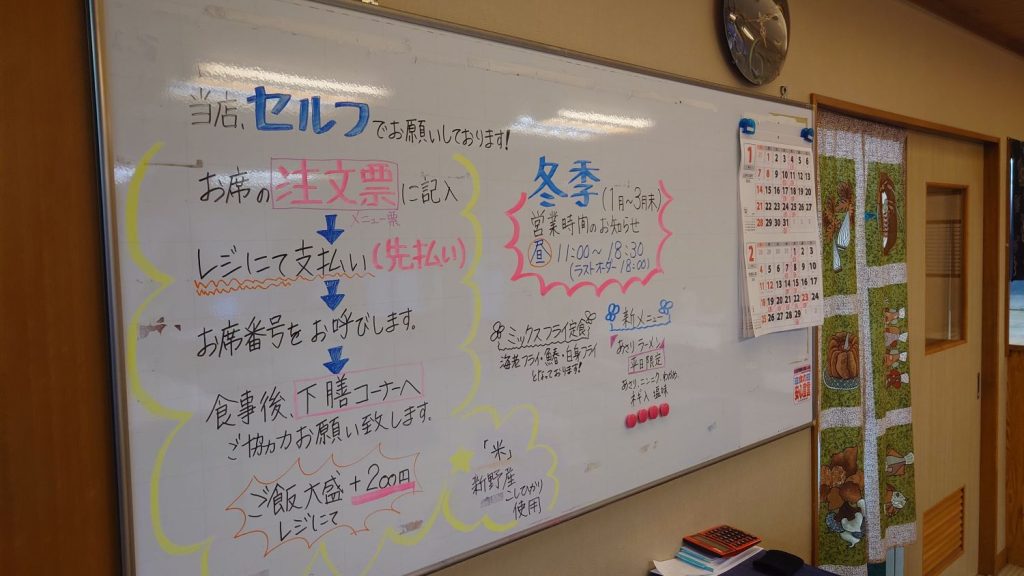 当店、セルフでお願いしております!
お席の注文票に記入
メニュー票
レジにて支払い(先払い)
お席番号をお呼びします。
食事後、下膳コーナーへ
ご協力お願い致します。
ご飯大盛+200円
レジにて
「米」
新野産
こしひかり
使用
冬季(1月～3月末)
営業時間のお知らせ
昼 11:00～18:30
(ラストオーダー 18:00)
ミックスフライ定食
海老フライ・魚春・白身フライ
となっております!
新メニュー
あさりラーメン
平日限定
あさり、ニンニク、わかめ、
ネギ入 塩味
1
1 2 3 4 5 6
7 8 9 10 11 12 13
14 15 16 17 18 19 20
21 22 23 24 25 26 27
28 29 30 31
2
1 2 3
4 5 6 7 8 9 10
11 12 13 14 15 16 17
18 19 20 21 22 23 24
25 26 27 28 29